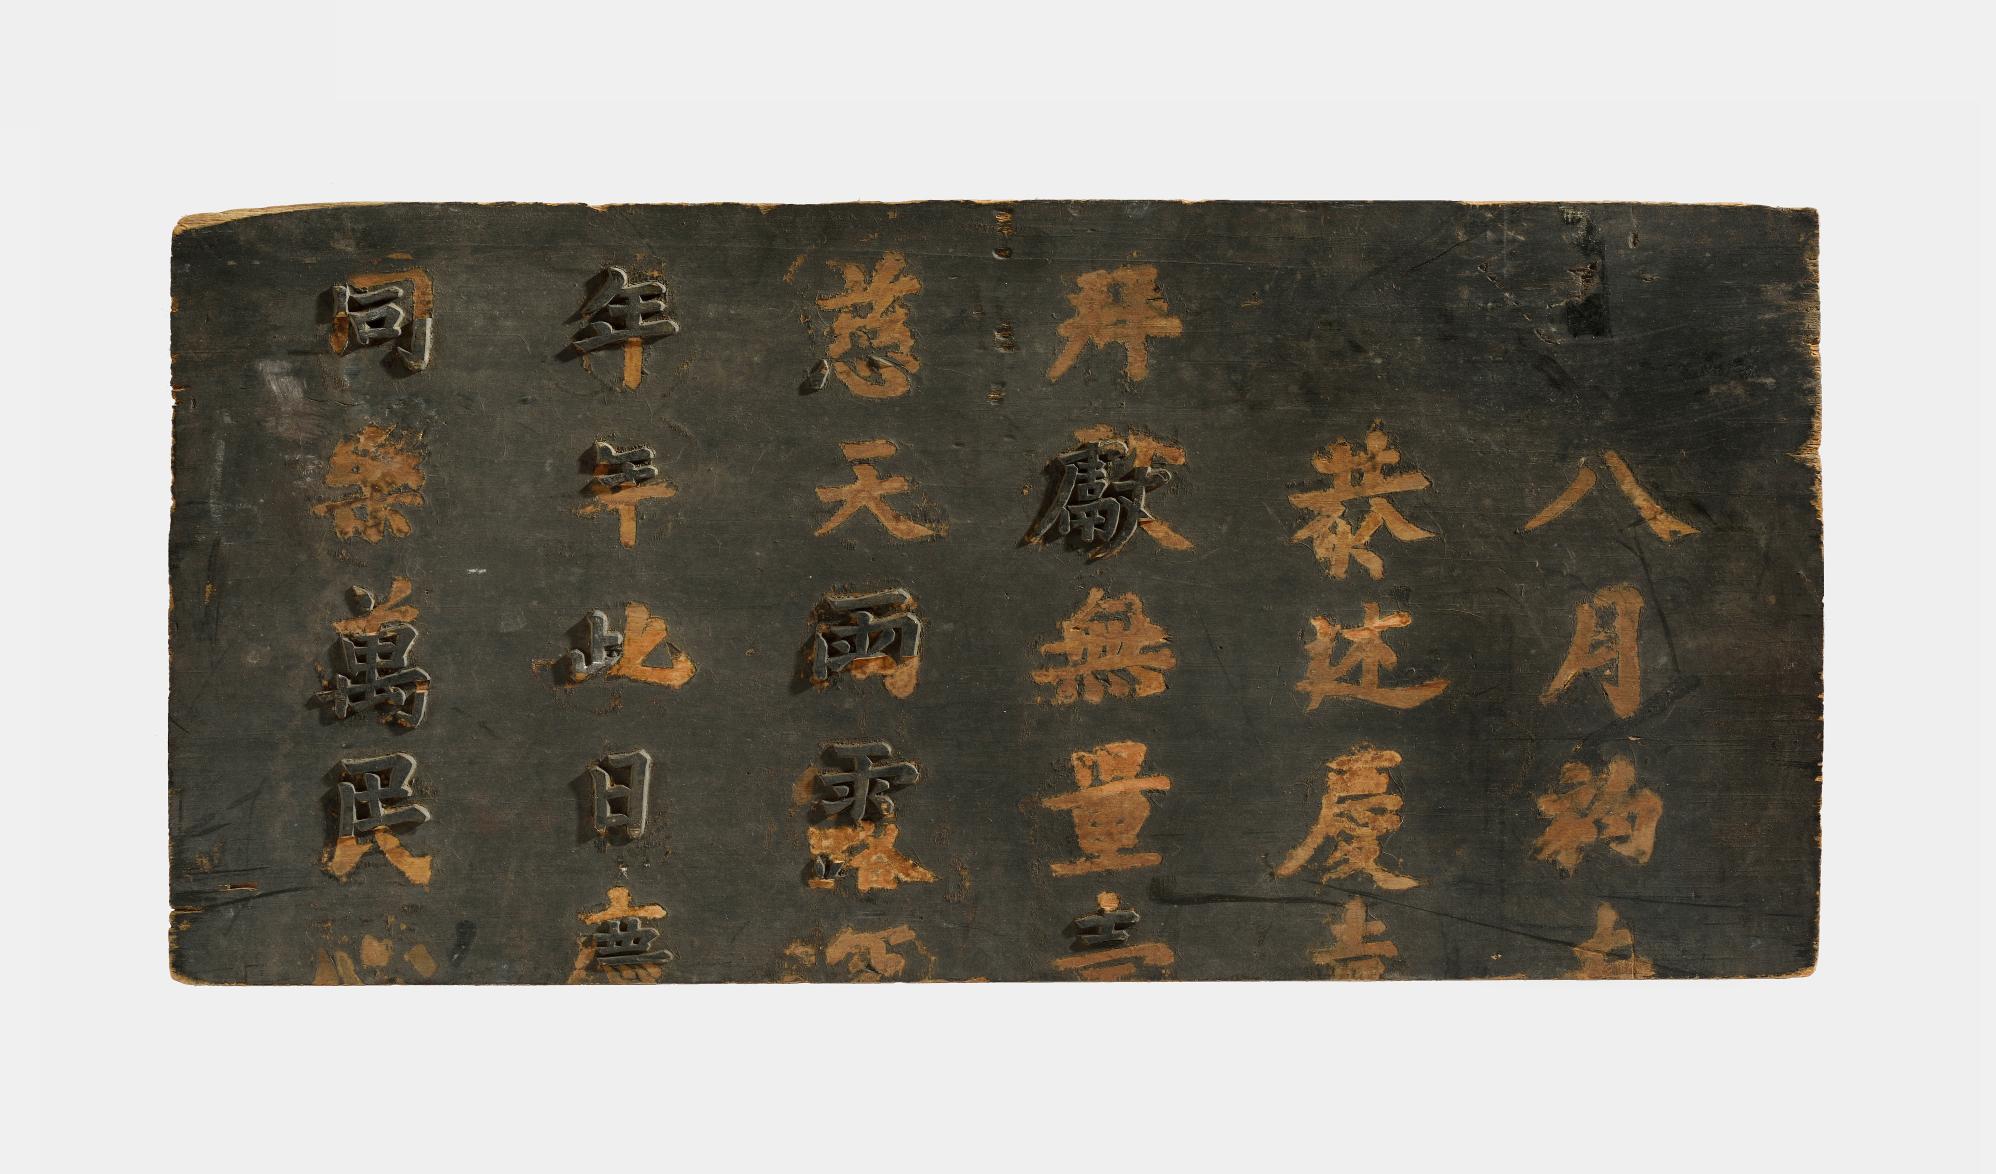 八月初
恭述慶
拜獻無量壽
慈天雨露
年年此日
同樂萬民心